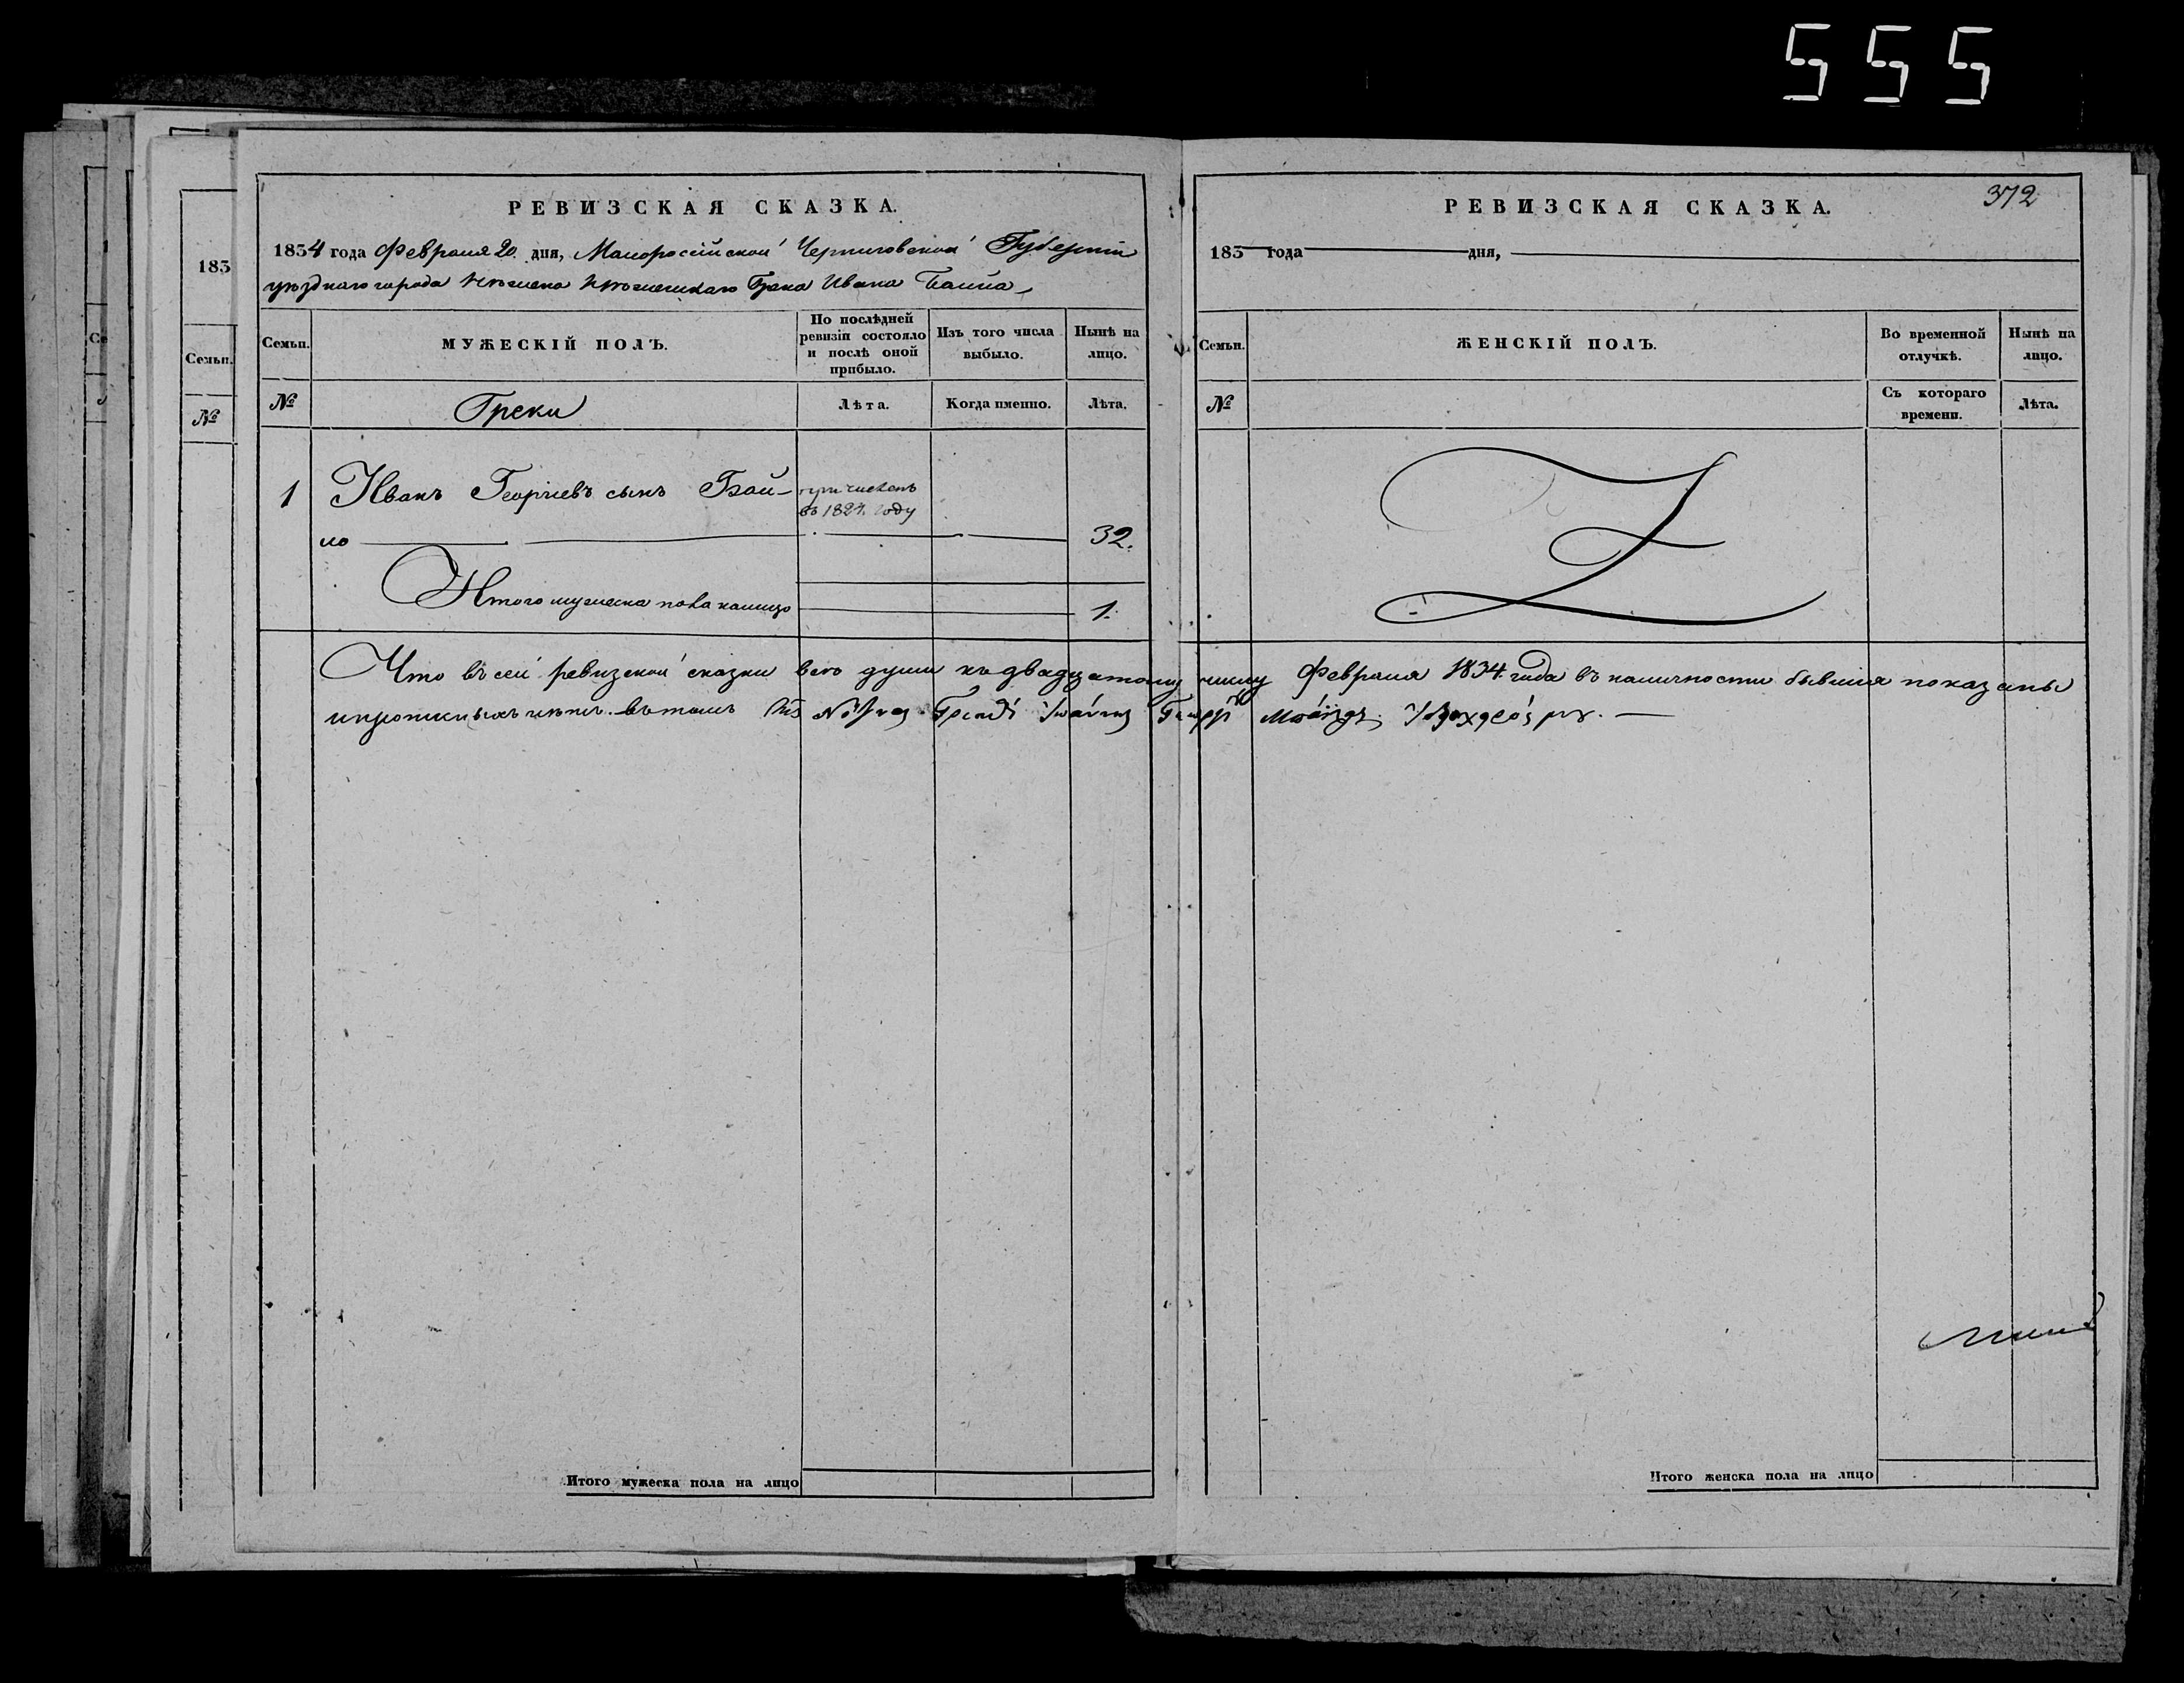 555
РЕВИЗСКАЯ СКАЗКА.
1834 года Февраля 20. дня, Малоросійской Черниговской Губерніи
уѣзднаго города Нѣжина Нѣжинскаго Грека Ивана
Семьи.
МУЖЕСКІЙ ПОЛЪ.
По послѣдней ревизіи состояло и послѣ оной прибыло.
Изъ того числа выбыло.
Нынѣ на лицо.
№
Греки
Лѣта.
Когда именно.
Лѣта.
1
Иванъ Георгіевъ сынъ Бай-
ло
причисленъ
въ 1827. году
32.
Итого мужеска пола налицо
1.
372
РЕВИЗСКАЯ СКАЗКА.
183 года дня,
Семьи.
ЖЕНСКІЙ ПОЛЪ.
Во временной отлучкѣ.
Нынѣ на лицо.
№
Съ котораго времени.
Лѣта.
Что въ сей ревизской сказки всѣ души къ двадцатому числу Февраля 1834. года въ наличности бывшія показаны
и прописныхъ нѣтъ. въ томъ
Итого мужеска пола на лицо
Итого женска пола на лицо
183
Семьи.
№